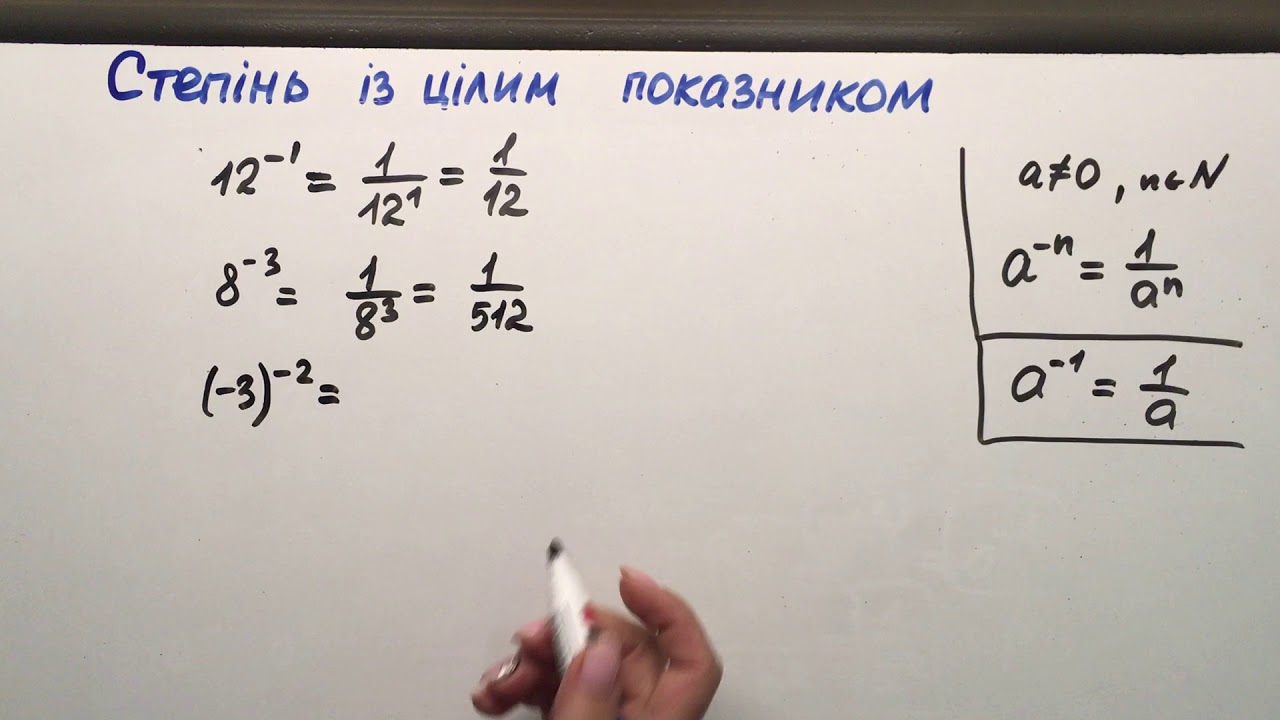 Степінь із цілим показником
12⁻¹ = 1/12¹ = 1/12
8⁻³ = 1/8³ = 1/512
(-3)⁻² =
a≠0, n∈N
a⁻ⁿ = 1/aⁿ
a⁻¹ = 1/a